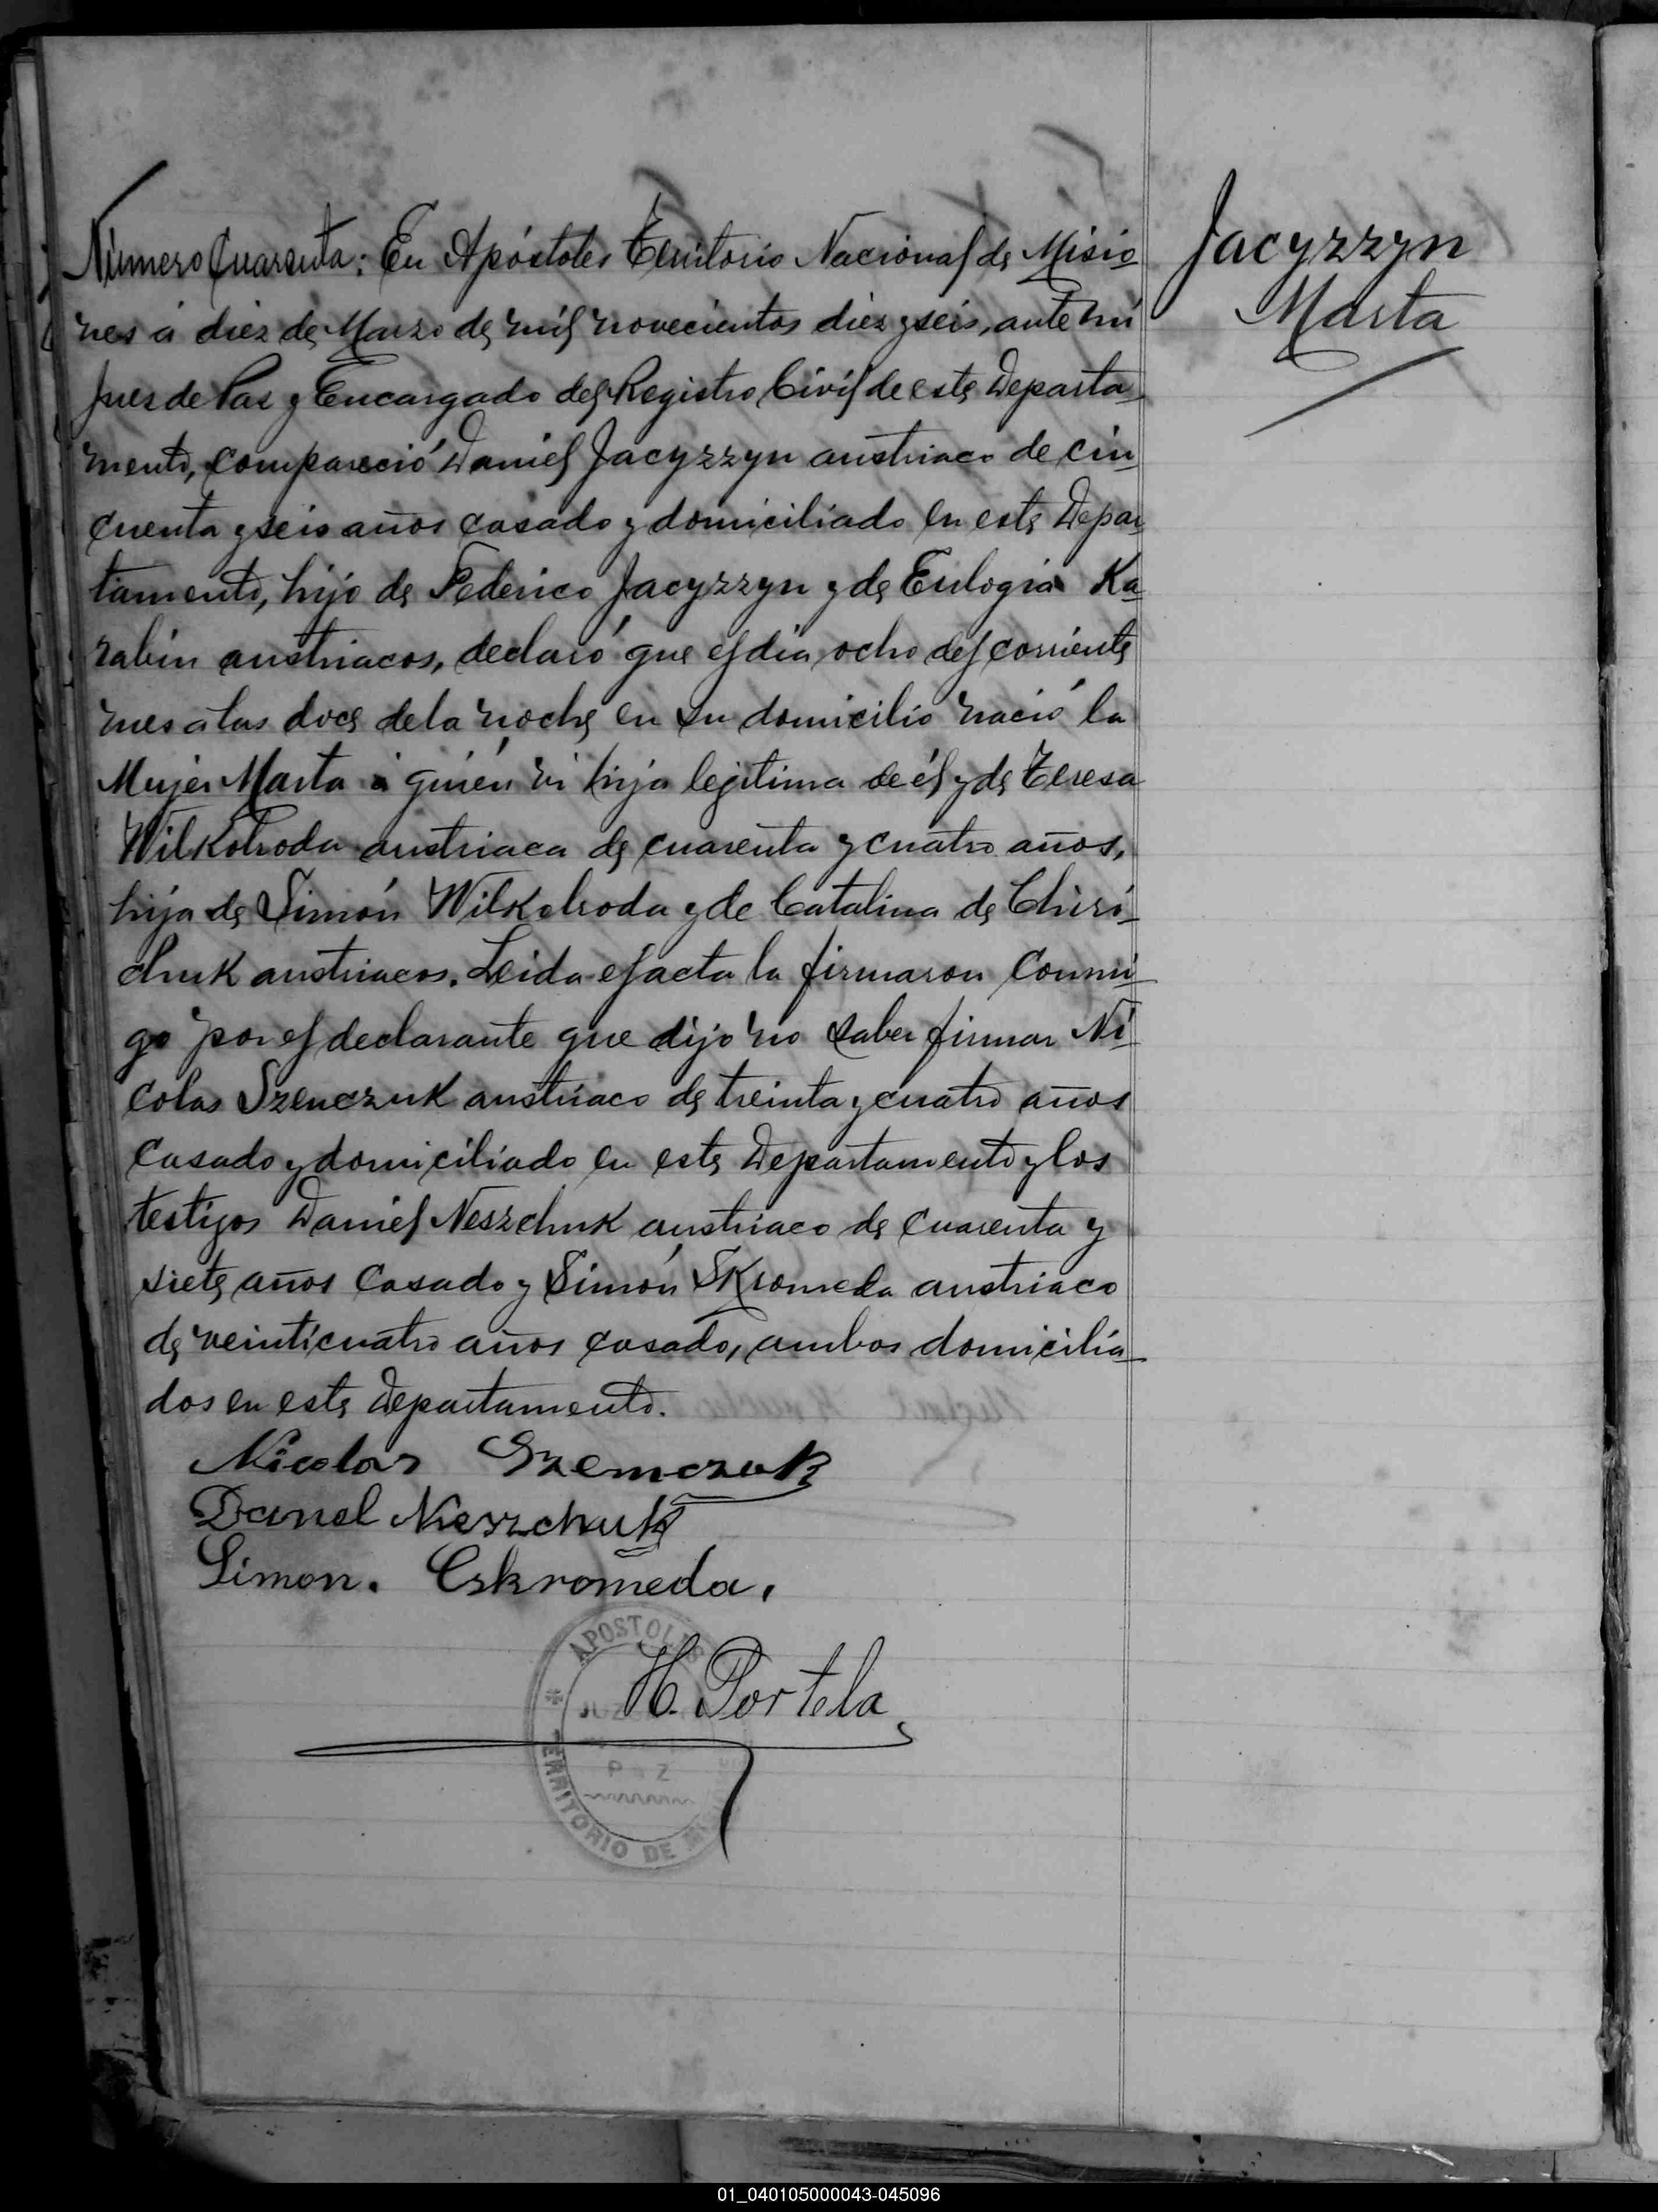 Número Cuarenta: En Apóstoles Territorio Nacional de Misio
nes á diez de Marzo de mil novecientos diez y seis, ante mí
Juez de Paz y Encargado del Registro Civil de este Departa
mento, compareció Daniel Jacyzzyn austriaco de cin
cuenta y seis años casado y domiciliado en este Depar
tamento, hijo de Federico Jacyzzyn y de Eulogia Ka
rabin austriacos, declaró que el día ocho del corriente
mes a las doce de la noche en su domicilio nació la
Mujer Marta á quién vi hija legitima de él y de Teresa
Wilkotroda austriaca de cuarenta y cuatro años,
hija de Simón Wilkolroda y de Catalina de Chiri
chuk austriacos. Leida el acta la firmaron conmi
go por el declarante que dijo no saber firmar Ni
colas Szenczuk austriaco de treinta y cuatro años
casado y domiciliado en este Departamento y los
testigos Daniel Neszchuk austriaco de cuarenta y
siete años casado y Simón Skromeda austriaco
de veinticuatro años casado, ambos domicilia
dos en este Departamento.
Nicolas Szemczuk
Danel Neszchuk
Simon. Eskromeda.
APOSTOLES
H. Portela
JUZ
PAZ
TERRITORIO DE MI
Jacyzzyn
Marta
01_040105000043-045096